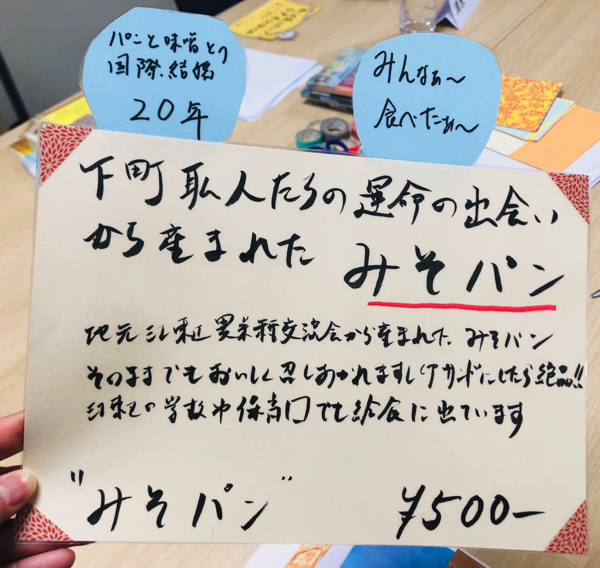 パンと味噌との
国際結婚
20年
みんなぁ〜
食べたぁ〜
下町職人たちの運命の出会い
から産まれた みそパン
地元江東区異業種交流会から産まれた みそパン
そのままでもおいしく召しあがれますし(アサンドにしたら絶品!!
江東区の学校や保育園でも給食に出ています
"みそパン" ¥500-